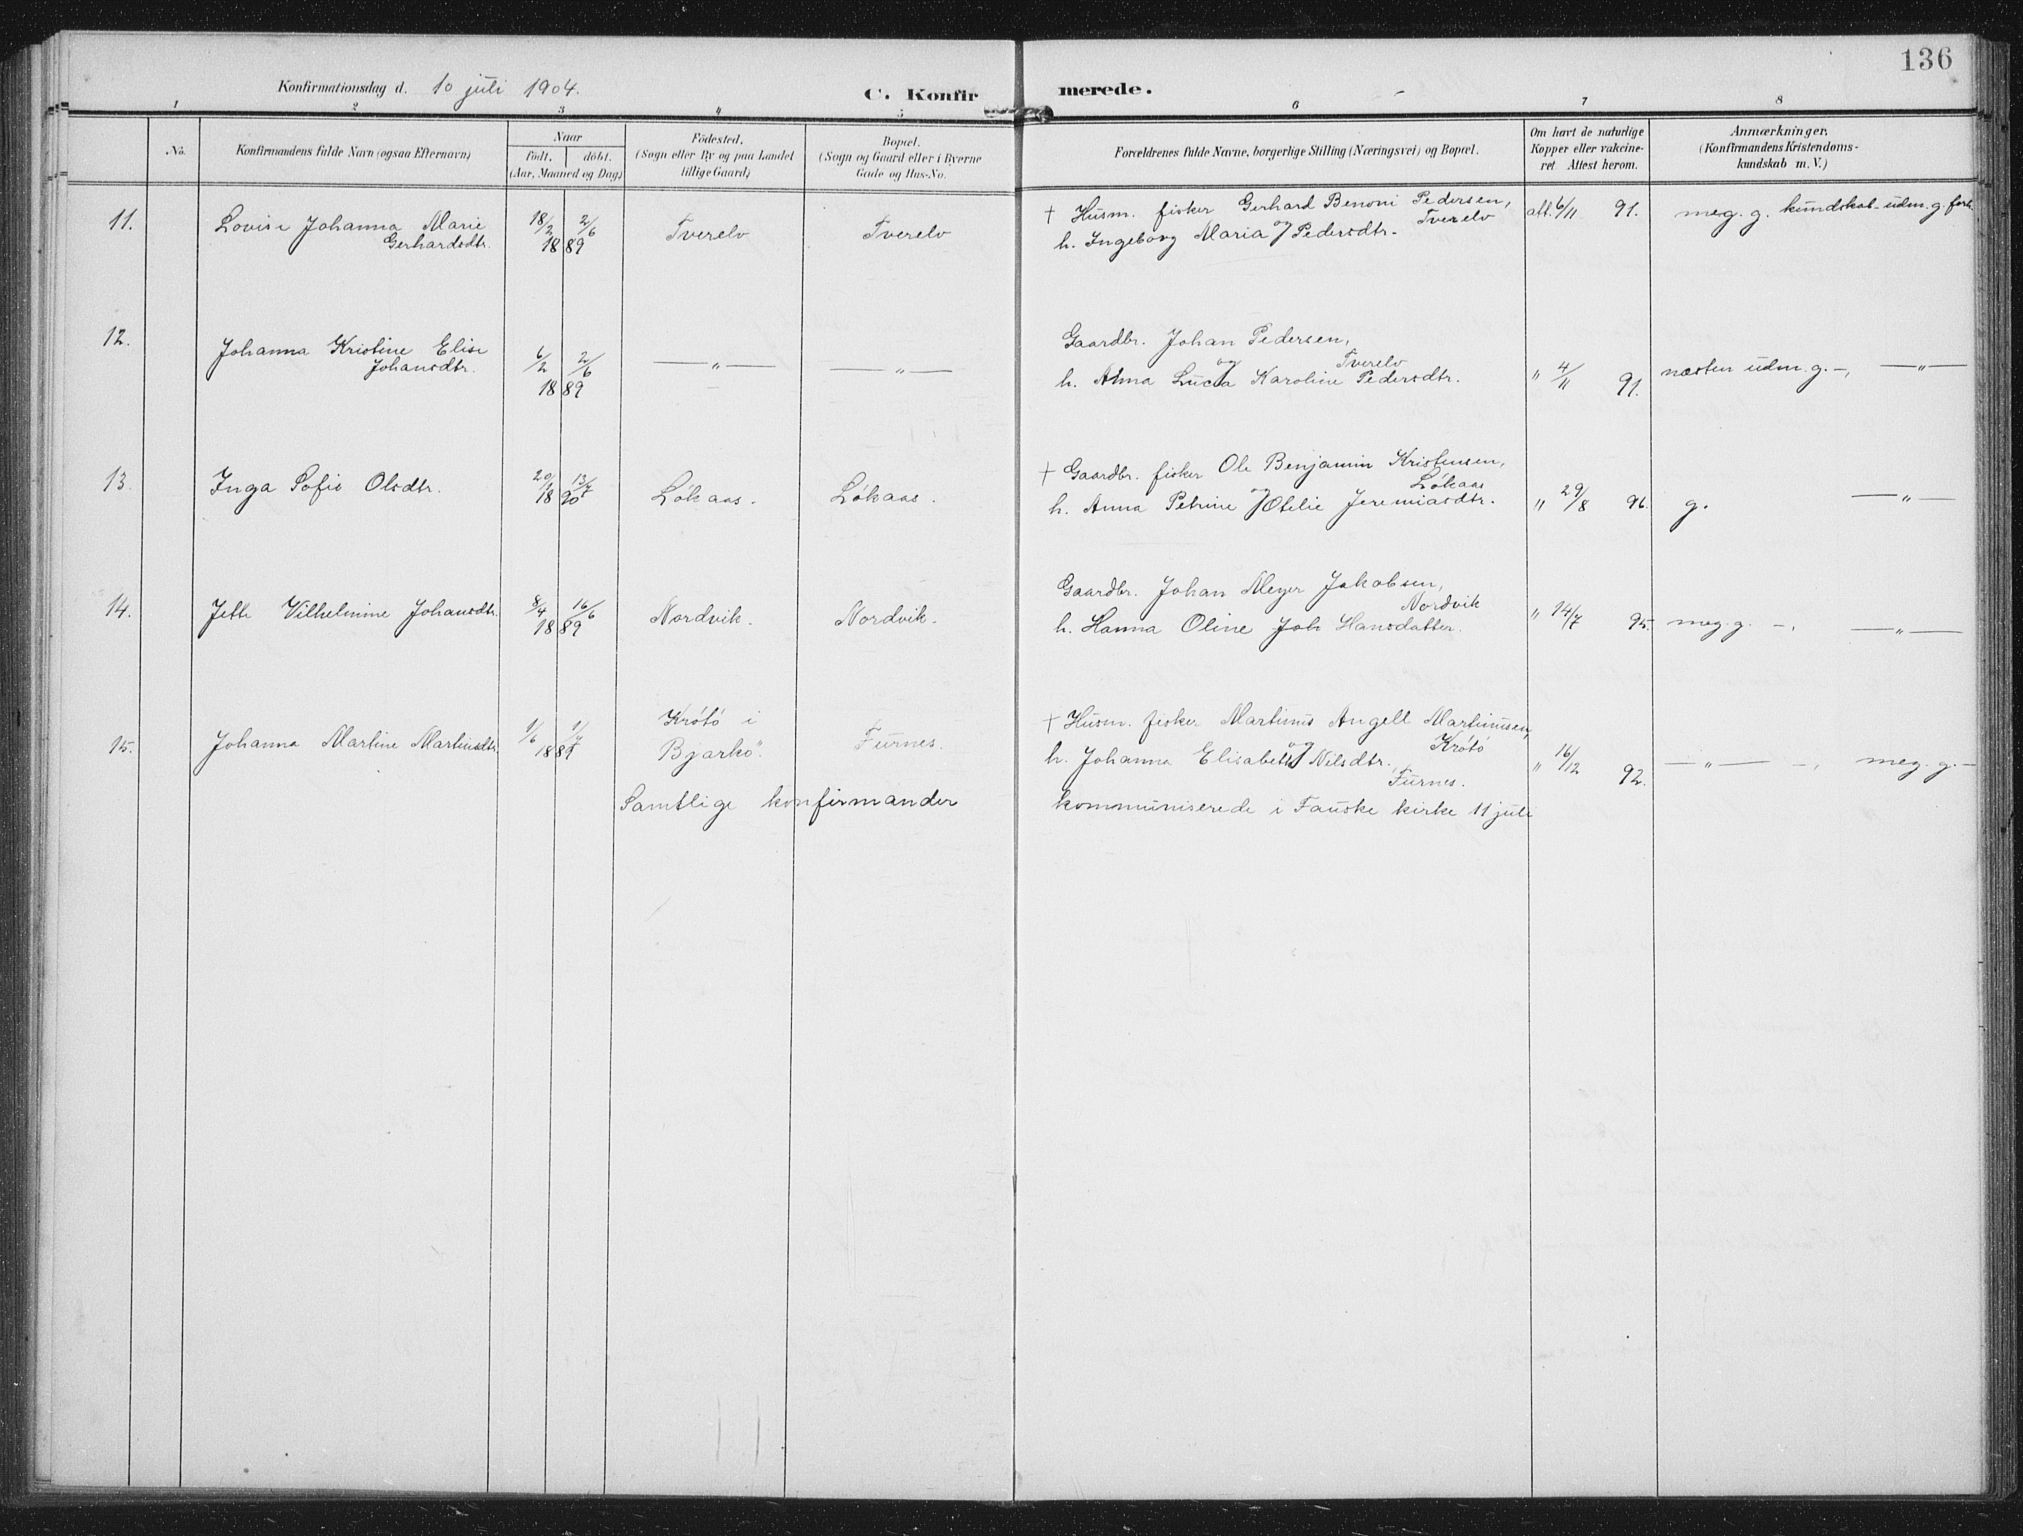 136
Konfirmationsdag d. 10 juli 1904.
C. Konfirmerede.
1 2 3 4 5 6 7 8
No.
Konfirmandens fulde Navn (ogsaa Efternavn)
Naar
födt. döbt.
(Aar, Maaned og Dag)
Födested.
(Sogn eller By og paa Landet
tillige Gaard)
Bopæl.
(Sogn og Gaard eller i Byerne
Gade og Hus-No.
Forældrenes fulde Navne, borgerlige Stilling (Næringsvei) og Bopæl.
Om havt de naturlige
Kopper eller vakcine-
ret Attest herom.
Anmærkninger.
(Konfirmandens Kristendoms-
kundskab m. V.)
11. Lovise Johanna Marie
Gerhardsdtr.
18/2 2/6
1889
Tverelv Tverelv
† Husm. fisker Gerhard Benoni Pedersen,
og Tverelv
h. Ingeborg Maria Pedersdtr.
att. 6/11 91. meg. g. kundskab - udm. g. forh.
12. Johanna Kristine Elise
Johansdtr.
6/2 2/6
1889
— " — — " —
Gaardbr. Johan Pedersen,
og Tverelv
h. Alma Lucia Karoline Pedersdtr.
" 4/11 91. næsten udm. g. -, — " —
13. Inga Sofie Olsdtr.
20/1 13/7
1890
Lökaas. Lökaas.
† Gaardbr. fisker Ole Benjamin Kristensen,
og Lökaas
h. Anna Petrine Otelie Jeremiasdtr.
" 29/8 96. g. — " —
14. Jette Vilhelmine Johansdtr.
8/4 16/6
1889
Nordvik. Nordvik.
Gaardbr. Johan Meyer Jakobsen,
Nordvik
h. Hanna Oline Joh Hansdatter.
" 14/7 95. meg. g. -, — " —
15. Johanna Martine Martinsdtr.
1/6 1/7
1889
Krötö i
Bjarkö. Furnes.
† Husm. fisker Martinus Angell Martinusen,
og Krötö
h. Johanna Elisabeth Nilsdtr.
Furnes.
" 16/12 92. — " — -, meg. g. -
Samtlige konfirmander kommuniserede i Fauske kirke 11 juli